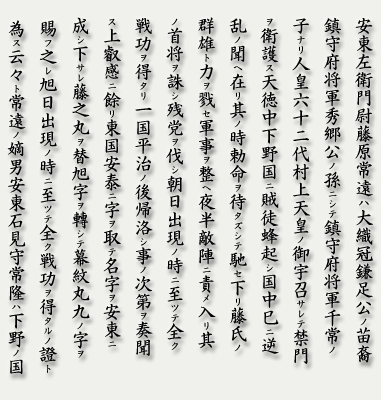 安東左衛門尉藤原常遠ハ大織冠鎌足公ノ苗裔
鎮守府将軍秀郷公ノ孫ニシテ鎮守府将軍千常ノ
子ナリ人皇六十二代村上天皇ノ御宇召サレテ禁門
ヲ衛護ス天徳中下野国ニ賊徒蜂起シ国中巳ニ逆
乱ノ聞ヘ在リ其ノ時勅命ヲ待タズシテ馳セ下リ藤氏ノ
群雄ト力ヲ戮セ軍事ヲ整ヘ夜半敵陣ニ責メ入リ其
ノ首将ヲ誅シ残党ヲ伐シ朝日出現ノ時ニ至ツテ全ク
戦功ヲ得タリ一国平治ノ後帰洛シ事ノ次第ヲ奏聞
ス上叡感ニ餘リ東国安泰ニ字ヲ取テ名字ヲ安東ニ
成シ下サレ藤之丸ヲ替旭字ヲ轉シテ幕紋丸九ノ字ヲ
賜フ之レ旭日出現ノ時ニ至ツテ全ク戦功ヲ得タルノ證ト
為ス云々ト常遠ノ嫡男安東石見守常隆ハ下野ノ国